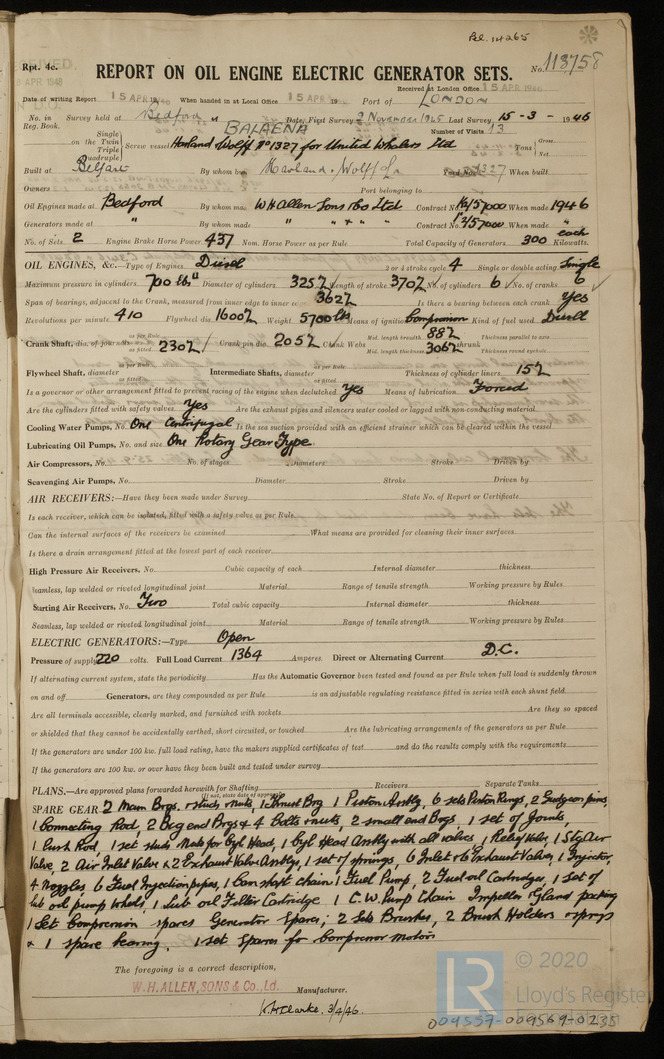 Bel. 14265
Rpt. 4c.
RECEIVED.
APR 1946
No. 113758
REPORT ON OIL ENGINE ELECTRIC GENERATOR SETS.
Received at London Office 15 APR
Date of writing Report 15 APR 19 When handed in at Local Office 15 APR 19 Port of LONDON
No. in Reg. Book. Survey held at Bedford Date, First Survey 2 November 1945 Last Survey 15 - 3 - 1946
Number of Visits 13
BALAENA
Single
on the Twin
Triple
Quadruple
Screw vessel Harland Wolff No 1327 for United Whalers Ltd Tons Gross Net
Built at Belfast By whom built Harland & Wolff Ld Yard No. 1327 When built
Owners Port belonging to
Oil Engines made at Bedford By whom made W H Allen Sons & Co Ltd Contract No. When made 1946
Generators made at " By whom made " " " " Contract No. When made "
No. of Sets 2 Engine Brake Horse Power 437 Nom. Horse Power as per Rule Total Capacity of Generators 300 each Kilowatts.
OIL ENGINES, &c.—Type of Engines Diesel 2 or 4 stroke cycle 4 Single or double acting Single
Maximum pressure in cylinders 700 lbs " Diameter of cylinders 325 Length of stroke 370 No. of cylinders 6 No. of cranks 6
Span of bearings, adjacent to the Crank, measured from inner edge to inner edge 362 Is there a bearing between each crank Yes
Revolutions per minute 410 Flywheel dia. 1600 Weight 5700 lbs Means of ignition Compression Kind of fuel used Diesel
Crank Shaft, dia. of journals as per Rule as fitted 230 Crank pin dia. 205 Crank Webs Mid. length breadth 88 Mid. length thickness 306 Thickness parallel to axis shrunk Thickness round eyehole
Flywheel Shaft, diameter as per Rule as fitted Intermediate Shafts, diameter as per Rule as fitted Thickness of cylinder liners 15
Is a governor or other arrangement fitted to prevent racing of the engine when declutched Yes Means of lubrication Forced
Are the cylinders fitted with safety valves Yes Are the exhaust pipes and silencers water cooled or lagged with non-conducting material
Cooling Water Pumps, No. One Centrifugal Is the sea suction provided with an efficient strainer which can be cleared within the vessel
Lubricating Oil Pumps, No. and size One Rotary Gear Type
Air Compressors, No. No. of stages Diameters Stroke Driven by
Scavenging Air Pumps, No. Diameter Stroke Driven by
AIR RECEIVERS:—Have they been made under Survey State No. of Report or Certificate
Is each receiver, which can be isolated, fitted with a safety valve as per Rule
Can the internal surfaces of the receivers be examined What means are provided for cleaning their inner surfaces
Is there a drain arrangement fitted at the lowest part of each receiver
High Pressure Air Receivers, No. Cubic capacity of each Internal diameter thickness
Seamless, lap welded or riveted longitudinal joint Material Range of tensile strength Working pressure by Rules
Starting Air Receivers, No. Two Total cubic capacity Internal diameter thickness
Seamless, lap welded or riveted longitudinal joint Material Range of tensile strength Working pressure by Rules
ELECTRIC GENERATORS:—Type Open
Pressure of supply 220 volts. Full Load Current 1364 Amperes. Direct or Alternating Current D.C.
If alternating current system, state the periodicity Has the Automatic Governor been tested and found as per Rule when full load is suddenly thrown
on and off Generators, are they compounded as per Rule is an adjustable regulating resistance fitted in series with each shunt field
Are all terminals accessible, clearly marked, and furnished with sockets Are they so spaced
or shielded that they cannot be accidentally earthed, short circuited, or touched Are the lubricating arrangements of the generators as per Rule
If the generators are under 100 kw. full load rating, have the makers supplied certificates of test and do the results comply with the requirements
If the generators are 100 kw. or over have they been built and tested under survey
PLANS.—Are approved plans forwarded herewith for Shafting Receivers Separate Tanks
(If not, state date of approval)
SPARE GEAR 2 Main Brgs. & studs & nuts, 1 Thrust Brg 1 Piston Assbly, 6 sets Piston Rings, 2 Gudgeon pins,
1 Connecting Rod, 2 Big end Brgs & 4 bolts & nuts, 2 small end Brgs 1 set of Joints,
1 Push Rod 1 set studs Nuts for Cyl Head, 1 Cyl Head Assbly with all valves 1 Relief Valve, 1 Stg Air
Valve, 2 Air Inlet Valve & 2 Exhaust Valve Assblys, 1 set of springs, 6 Inlet & 6 Exhaust Valves, 1 Injector,
4 Nozzles 6 Fuel Injection pipes, 1 Cam shaft chain 1 Fuel Pump, 2 Fuel oil Cartridges, 1 Set of
lub oil pump wheels, 1 Lub. oil Filter Cartridge 1 C.W. Pump Chain Impeller & Gland packing
1 Set Compression spares Generator Spares; 2 Sets Brushes, 2 Brush Holders & springs
& 1 spare bearing. 1 set Spares for Compressor motors
The foregoing is a correct description,
W.H. ALLEN, SONS & Co., Ld. Manufacturer.
K.H. Clarke. 3/4/46.
© 2020
LR Lloyd's Register
009557-009569-0235